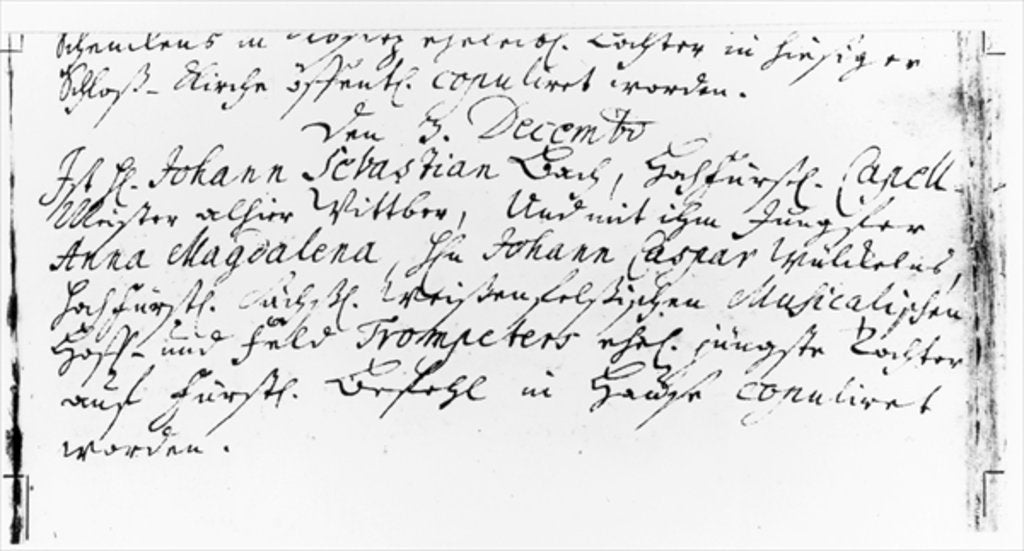 Schenckens in ehelebl. Tochter in hiesiger
Schloß-Kirche öffentl. copuliret worden.
Den 3. Decembr
Ist H. Johann Sebastian Bach, HochFürstl. Capell-
Meister alhier Wittber, Und mit ihm Jungfer
Anna Magdalena, H. Johann Caspar Wülckens,
HochFürstl. Sächßl. Weißenfelßischen Musicalischen
Hoff- und Feld Trompeters ehel. jüngste Tochter
auf Fürstl. Befehl in Hause copuliret
worden.